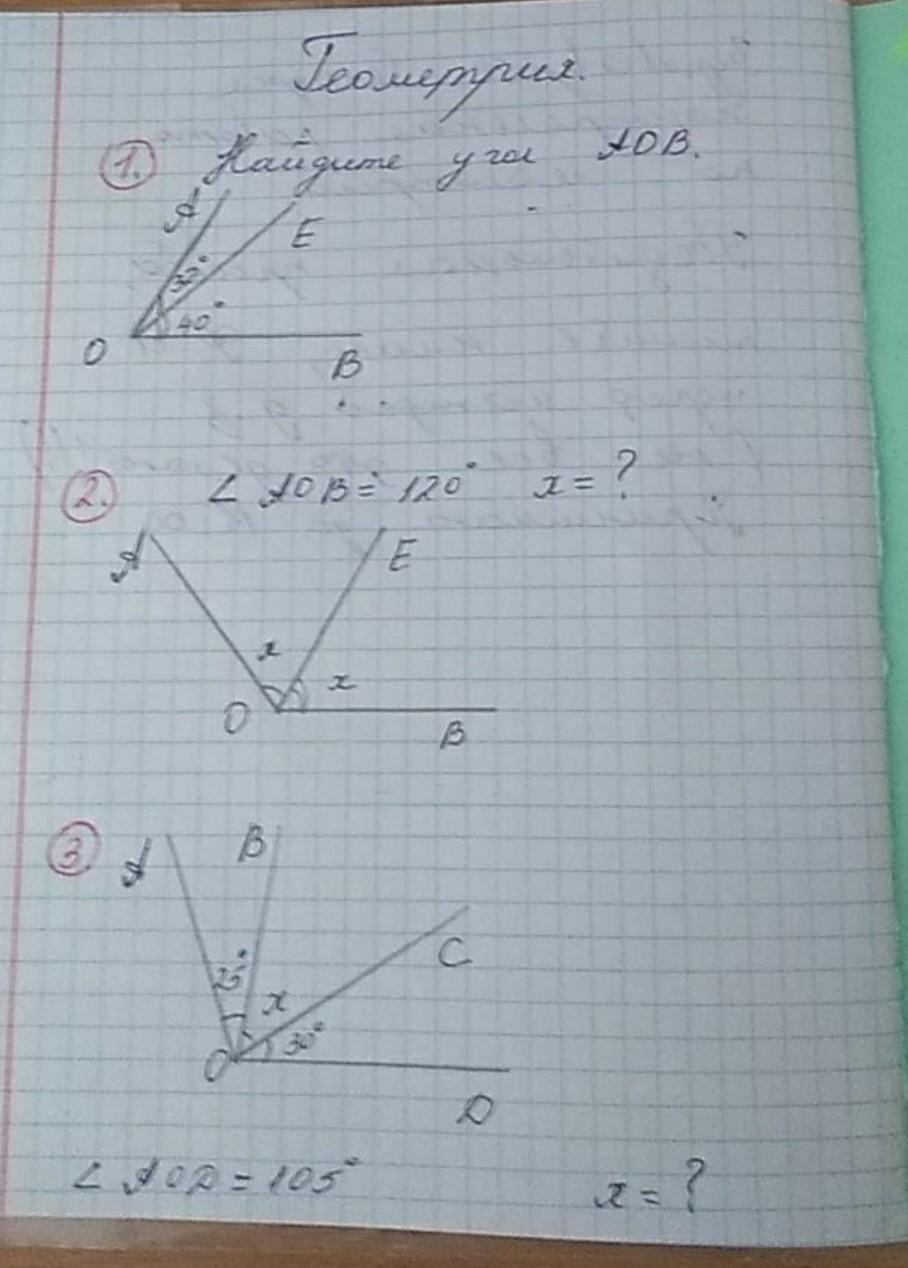 Геометрия.
1. Найдите угол AOB.
A
E
32°
40°
O
B
2. ∠ AOB = 120° x = ?
A
E
x
x
O
B
3. A B
C
25°
x
30°
O
D
∠ AOD = 105° x = ?